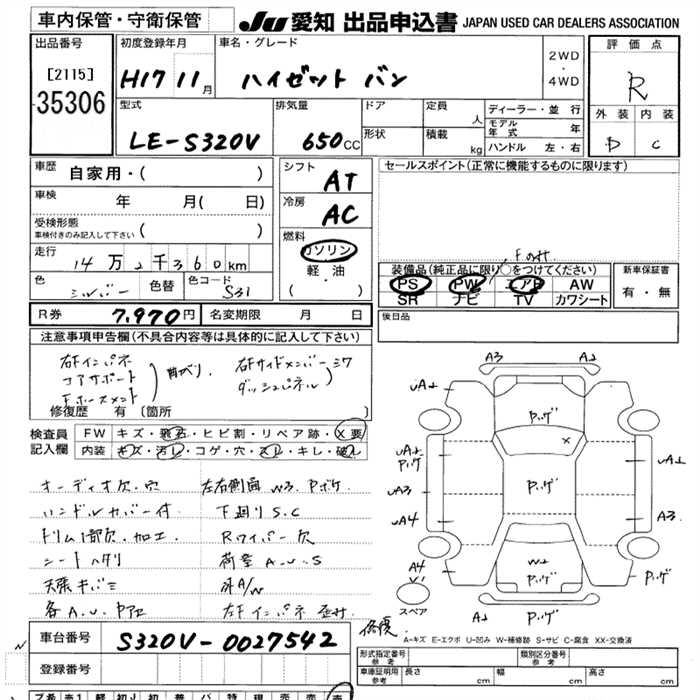 車内保管・守衛保管
JU 愛知 出品申込書 JAPAN USED CAR DEALERS ASSOCIATION
出品番号
[2115]
35306
初度登録年月
H17 11月
車名・グレード
ハイゼット バン
2WD
・
4WD
評価点
R
外装 内装
D C
型式
LE-S320V
排気量
650cc
ドア
形状
定員
人
積載
kg
ディーラー・並行
モデル年式 年
ハンドル 左・右
車歴
自家用・( )
車検
年 月( 日)
受検形態
車検付きのみ記入して下さい ( )
走行
14万2千360km
色
シルバー
色替
色コード
S31
シフト
AT
冷房
AC
燃料
ガソリン
軽油
( ・ )
セールスポイント(正常に機能するものに限ります)
Fのみ
装備品(純正品に限り○をつけてください)
PS PW エアB AW
SR ナビ TV カワシート
新車保証書
有・無
R券
7,970円
名変期限 月 日
後日品
注意事項申告欄(不具合内容等は具体的に記入して下さい)
右Fインパネ
コアサポート
曲がり,
右Fサイドメンバー
ダッシュパネル
修復歴 有 〔箇所 〕
検査員
記入欄
FW キズ・飛石・ヒビ割・リペア跡・X要
内装 キズ・汚レ・コゲ・穴・スレ・キレ・破レ
オーディオ欠.穴 左右側面 W3. Pボケ
ハンドルカバー付 下廻りS.C
ドリム1部欠.加工 Rワイパー欠
シートヘタリ 荷室 A.U.S
天張キバミ
各A.U.
車台番号
S320V-0027542
登録番号
A3 A2
UA2
Pハゲ
UA2
Pハゲ
X
UA3
Pハゲ
UA2
UA4
A3
W2
Pハゲ
A4
Pハゲ
スペア
A2
Pハゲ
修復
A-キズ E-エクボ U-凹み W-補修跡 S-サビ C-腐食 XX-交換済
形式指定番号
参考
類別区分番号
参考
車庫証明用
参考
長さ cm 幅 cm 高さ cm